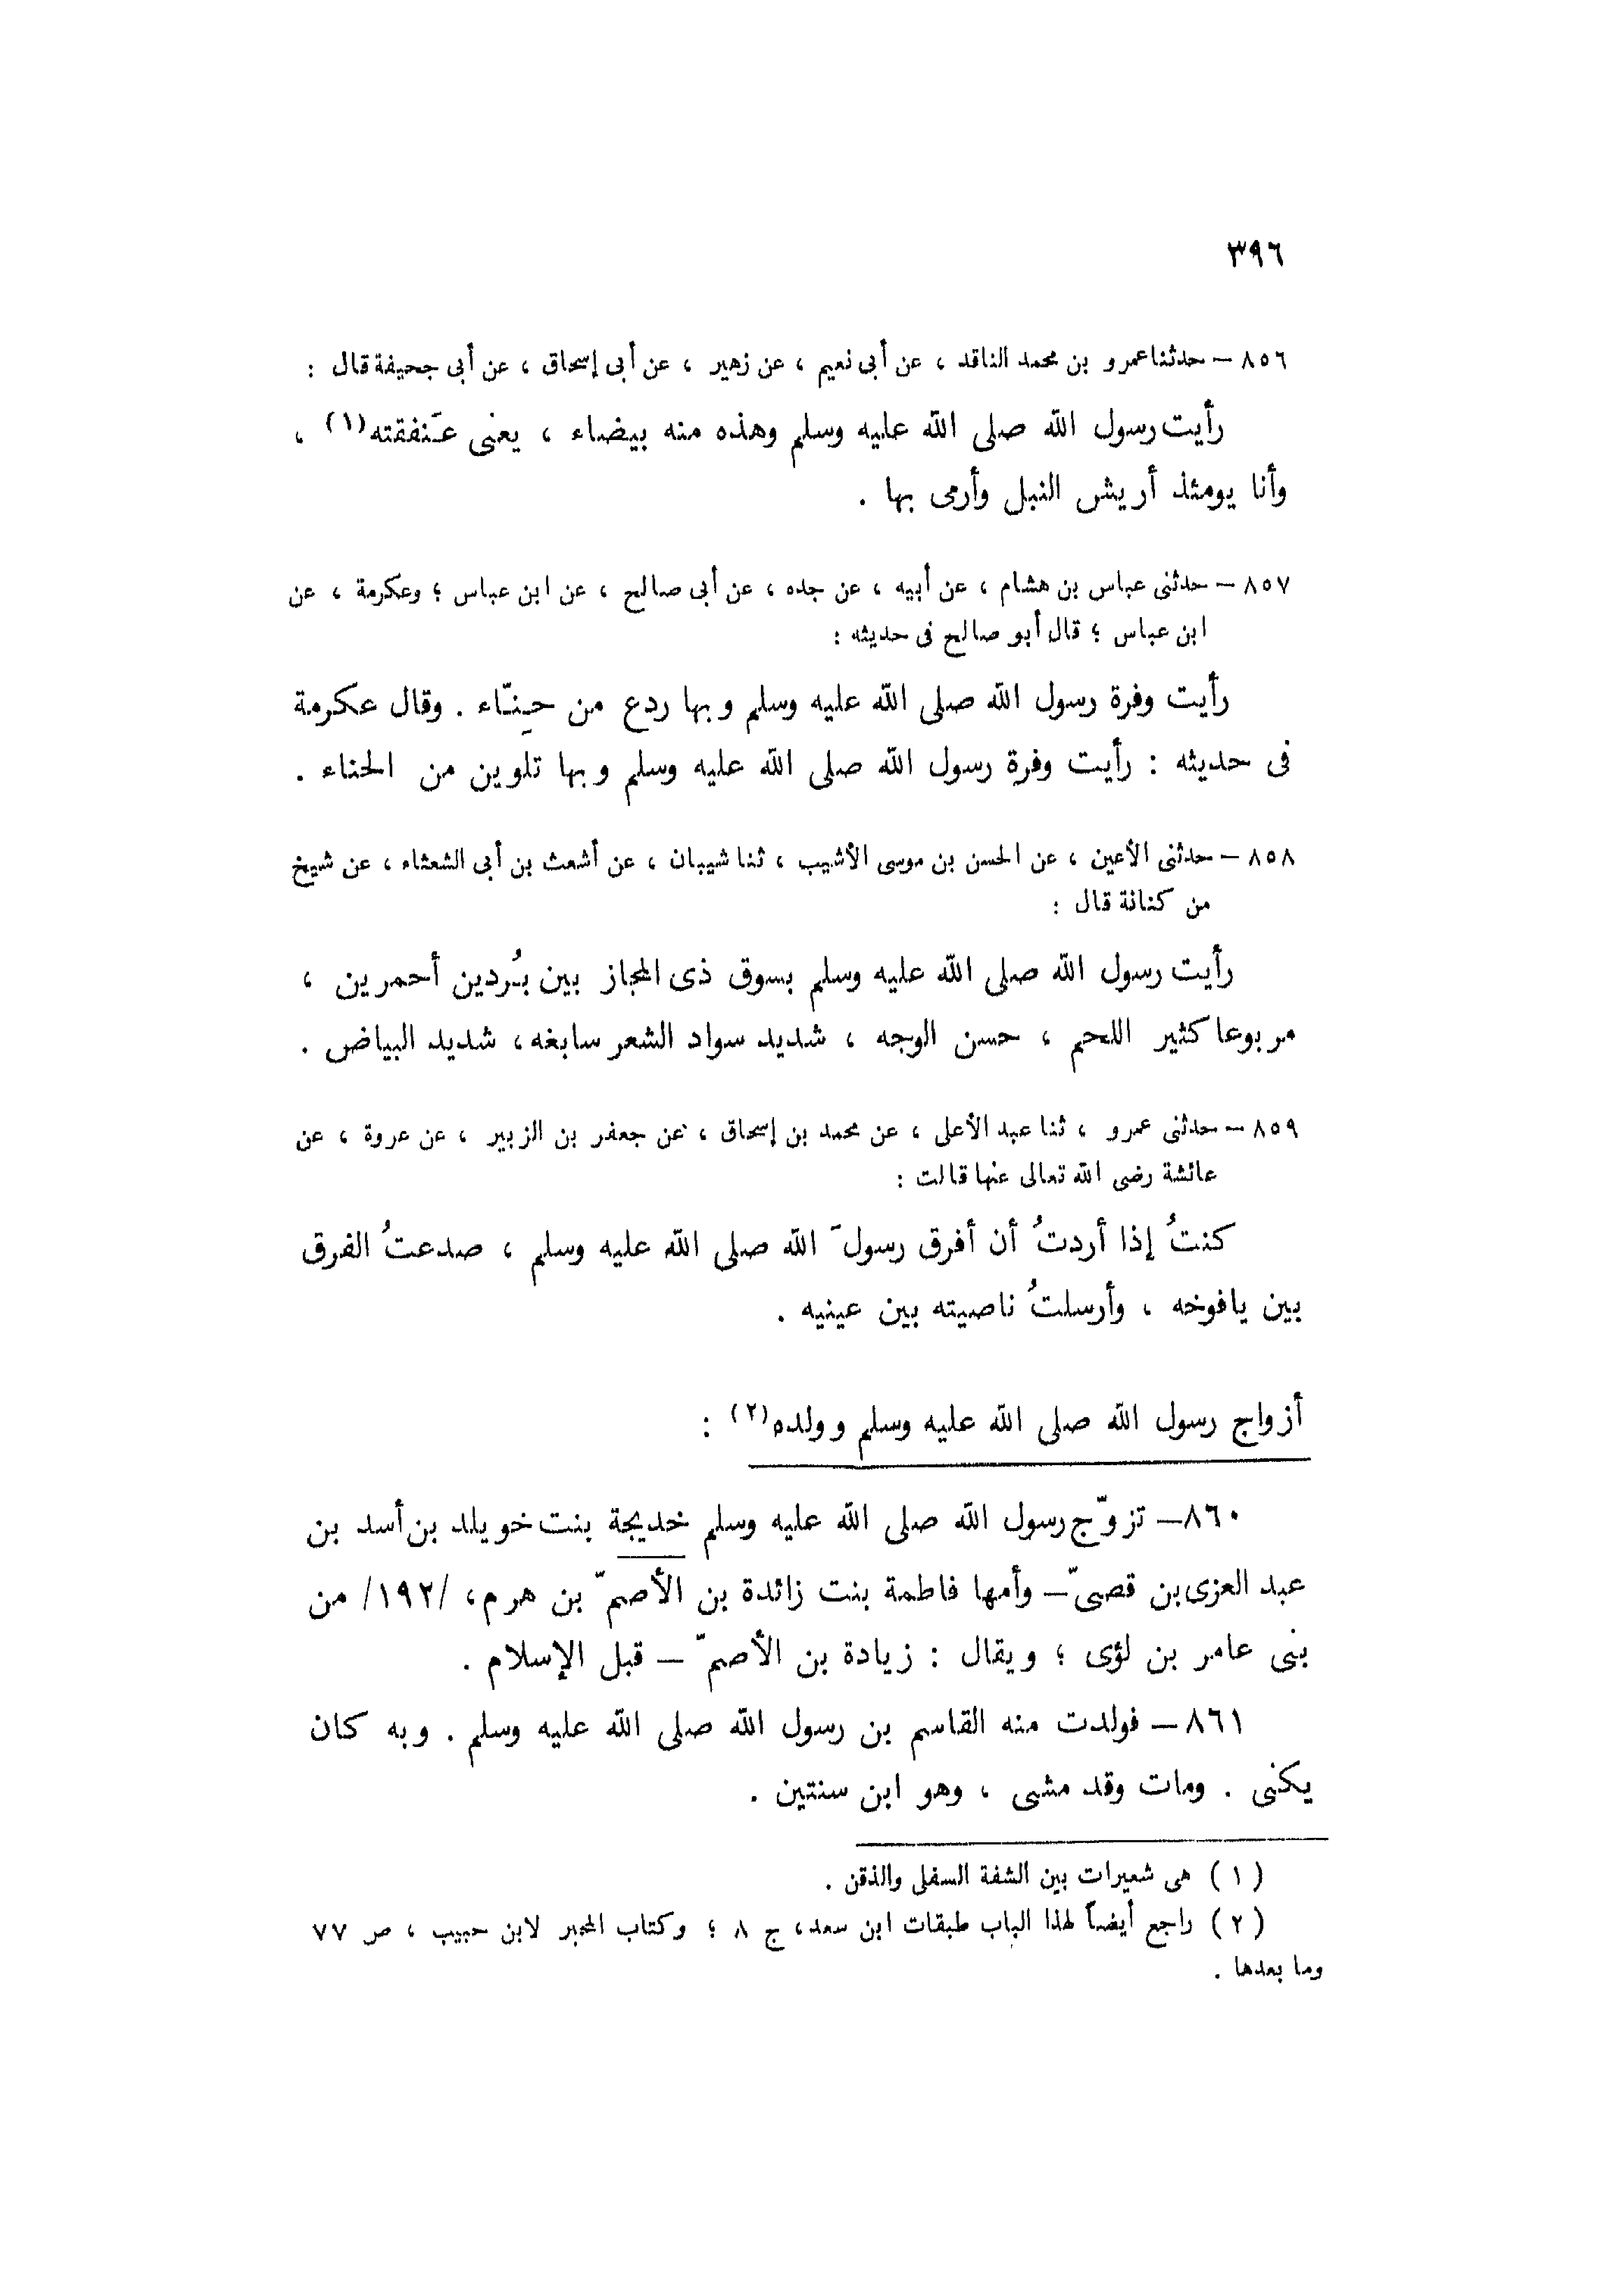 ٣٩٦
٨٥٦ – حدثنا عمرو بن محمد الناقد ، عن أبى نعيم ، عن زهير ، عن أبى إسحاق ، عن أبى جحيفة قال :
رأيت رسول الله صلى الله عليه وسلم وهذه منه بيضاء ، يعنى عَنفقته(١) ،
وأنا يومئذ أريش النبل وأرمى بها .
٨٥٧ – حدثنى عباس بن هشام ، عن أبيه ، عن جده ، عن أبى صالح ، عن ابن عباس ؛ وعكرمة ، عن
ابن عباس ؛ قال أبو صالح فى حديثه :
رأيت وفرة رسول الله صلى الله عليه وسلم وبها ردع من حِنّاء . وقال عكرمة
فى حديثه : رأيت وفرة رسول الله صلى الله عليه وسلم وبها تلوين من الحناء .
٨٥٨ – حدثنى الأعين ، عن الحسن بن موسى الأشيب ، ثنا شيبان ، عن أشعث بن أبى الشعثاء ، عن شيخ
من كنانة قال :
رأيت رسول الله صلى الله عليه وسلم بسوق ذى المجاز بين بُردين أحمرين ،
مربوعا كثير اللحم ، حسن الوجه ، شديد سواد الشعر سابغه ، شديد البياض .
٨٥٩ – حدثنى عمرو ، ثنا عبد الأعلى ، عن محمد بن إسحاق ، عن جعفر بن الزبير ، عن عروة ، عن
عائشة رضى الله تعالى عنها قالت :
كنتُ إذا أردتُ أن أفرق رسولَ الله صلى الله عليه وسلم ، صدعتُ الفرق
بين يافوخه ، وأرسلتُ ناصيته بين عينيه .
أزواج رسول الله صلى الله عليه وسلم وولده(٢) :
٨٦٠ – تزوّج رسول الله صلى الله عليه وسلم خديجة بنت خويلد بن أسد بن
عبد العزى بن قصىّ – وأمها فاطمة بنت زائدة بن الأصمّ بن هرم ، /١٩٢/ من
بنى عامر بن لؤى ؛ ويقال : زيادة بن الأصمّ – قبل الإسلام .
٨٦١ – فولدت منه القاسم بن رسول الله صلى الله عليه وسلم . وبه كان
يكنى . ومات وقد مشى ، وهو ابن سنتين .
(١) هى شعيرات بين الشفة السفلى والذقن .
(٢) راجع أيضاً لهذا الباب طبقات ابن سعد ، ج ٨ ؛ وكتاب المحبر لابن حبيب ، ص ٧٧
وما بعدها .